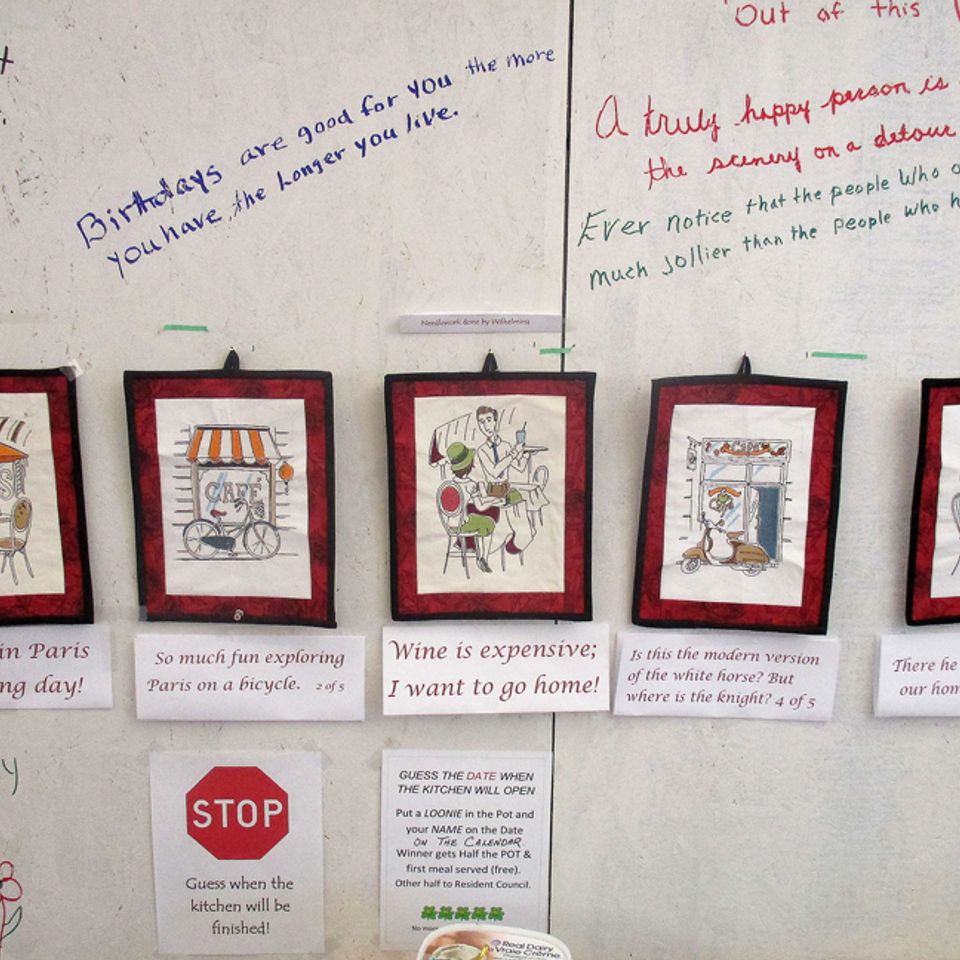 "Out of this
Birthdays are good for you the more
you have the longer you live.
A truly happy person is
the scenery on a detour
Ever notice that the people who
much jollier than the people who
Needlework done by Wilhelmina
CAFÉ
CAFE
in Paris
ng day!
So much fun exploring
Paris on a bicycle. 2 of 5
Wine is expensive;
I want to go home!
Is this the modern version
of the white horse? But
where is the knight? 4 of 5
There he
our hom
y
STOP
Guess when the
kitchen will be
finished!
GUESS THE DATE WHEN
THE KITCHEN WILL OPEN
Put a LOONIE in the Pot and
your NAME on the Date
ON THE CALENDAR.
Winner gets Half the POT &
first meal served (free).
Other half to Resident Council.
No mor
Real Dairy
Vraie Crème